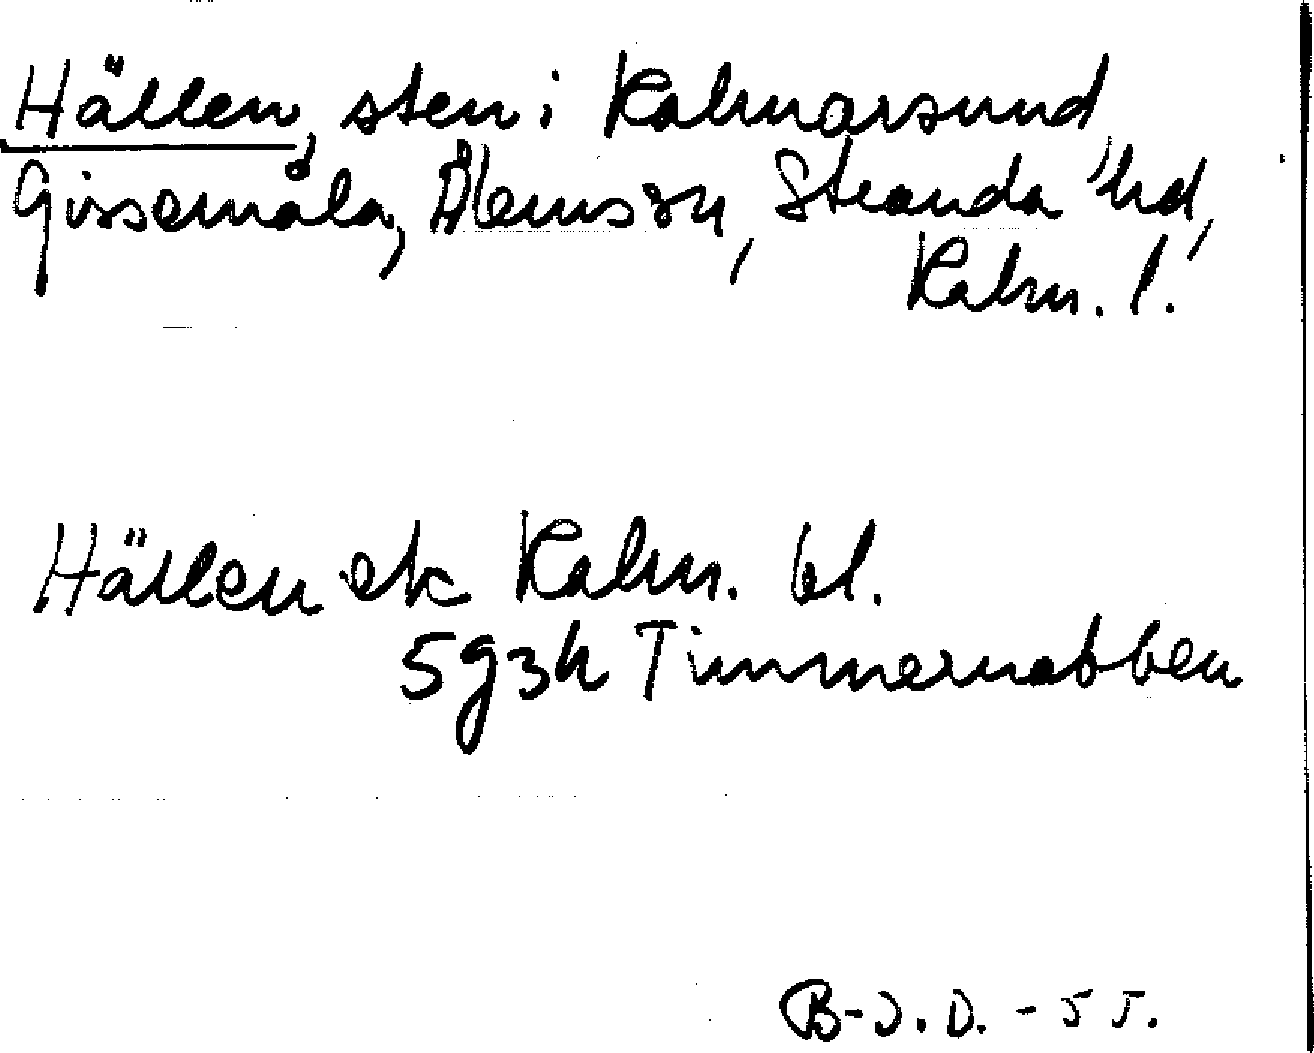 Hällen, sten i Kalmarsund,
Gissemåla, Ålems sn, Stranda hd,
Kalm. l.
Hällen ek Kalm. bl.
5g3h Timmernabben
B-J.D. - 55.